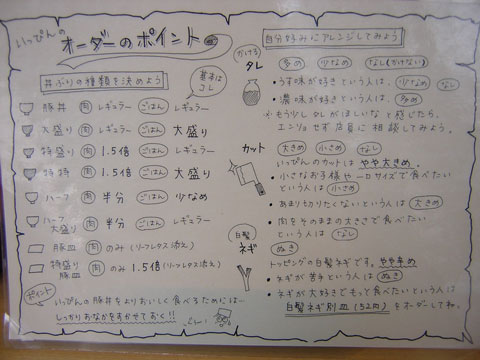 いっぴんの
オーダーのポイント
丼ぶりの種類を決めよう
基本はコレ
豚丼 肉 レギュラー ごはん レギュラー
大盛り 肉 レギュラー ごはん 大盛り
特盛り 肉 1.5倍 ごはん レギュラー
特特 肉 1.5倍 ごはん 大盛り
ハーフ 肉 半分 ごはん 少なめ
ハーフ大盛り 肉 半分 ごはん レギュラー
豚皿 肉 のみ (リーフレタス添え)
特盛り豚皿 肉 のみ 1.5倍 (リーフレタス添え)
ポイント
いっぴんの豚丼をよりおいしく食べるためには…
しっかりおなかをすかせておく!!
自分好みにアレンジしてみよう
かけろ
タレ 多め 少なめ なし(かけない)
・うす味が好きという人は、少なめ なし
・濃い味が好きという人は、多め
※もう少しタレがほしいなと感じたら、
エンリョせず店員に相談してみよう。
カット 大きめ 小さめ なし
いっぴんのカットは やや大きめ。
・小さなお子様や一口サイズで食べたい
という人は 小さめ
・あまりものたりなくないという人は 大きめ
・肉をそのままの大きさで食べたい
という人は なし
白髪ネギ ぬき
トッピングの白髪ネギです。やや辛め
・ネギが苦手という人は ぬき
・ネギが大好きでもっと食べたいという人は
白髪ネギ別皿(52円)をオーダーしてね。